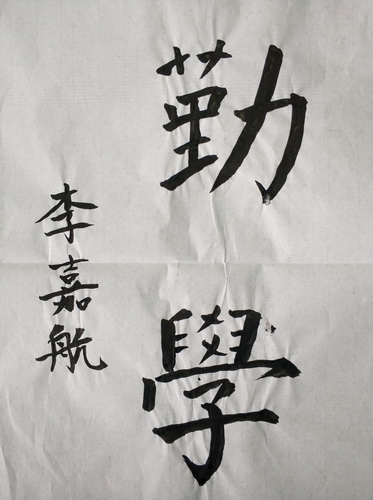 勤學
李嘉航